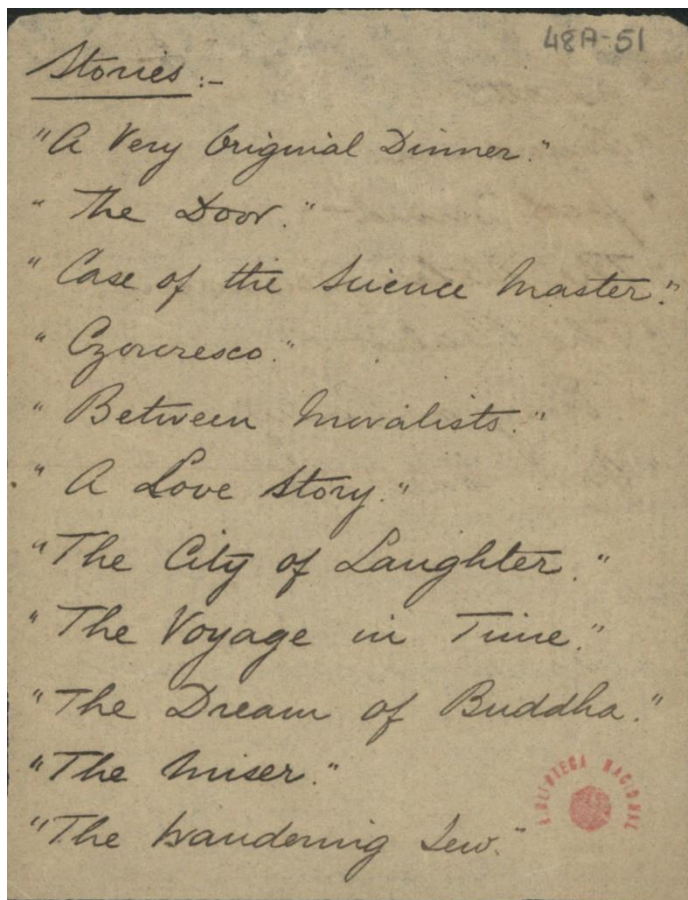 48A-51
Stories:-
"A Very Original Dinner."
"The Door."
"Case of the Science Master."
"Czoresco."
"Between Moralists."
"A Love Story."
"The City of Laughter."
"The Voyage in Time."
"The Dream of Buddha."
"The Miser."
BIBLIOTECA NACIONAL
"The Wandering Jew."